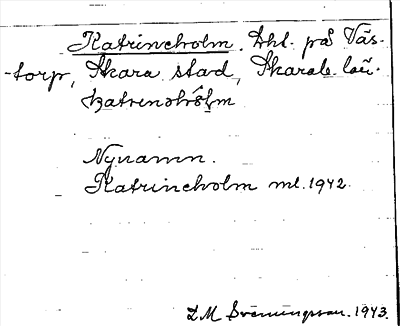 Katrineholm. Lht. på Väs-
-torp, Skara stad, Skarab. län.
katrenəhôlm
Nynamn.
Katrineholm ml. 1942.
L M Svenningson. 1943.